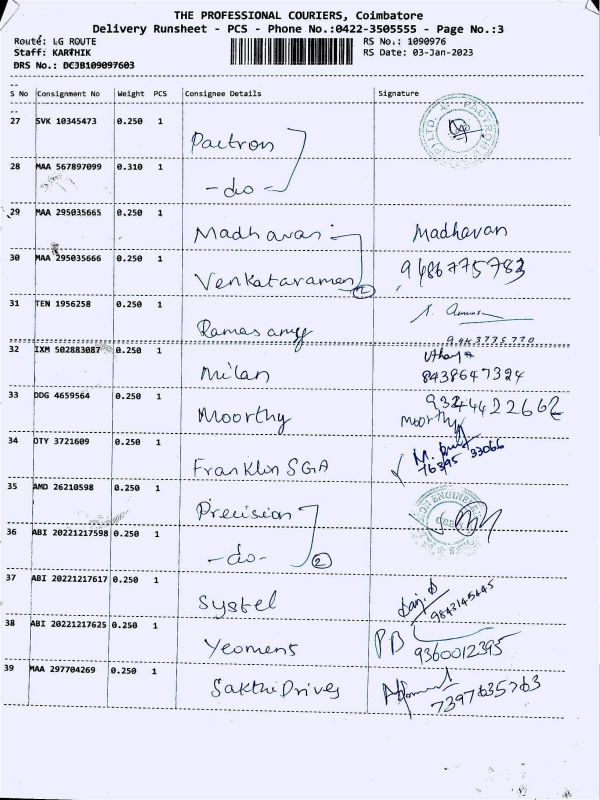 THE PROFESSIONAL COURIERS, Coimbatore
Delivery Runsheet - PCS - Phone No.:0422-3505555 - Page No.:3
Route: LG ROUTE RS No.: 1090976
Staff: KARTHIK RS Date: 03-Jan-2023
DRS No.: DC3B109097603
S No Consignment No Weight PCS Consignee Details Signature
27 SVK 10345473 0.250 1 Pactron
28 MAA 567897099 0.310 1 -do-
29 MAA 295035665 0.250 1 Madhavan Madhavan
30 MAA 295035666 0.250 1 Venkataraman 2 9486775783
31 TEN 1956258 0.250 1 Ramasamy
32 IXM 502883087 0.250 1 Milan 8438647394
33 DDG 4659564 0.250 1 Moorthy Moorthy
34 OTY 3721609 0.250 1 Franklin SGA 76395 33066
35 AMD 26210598 0.250 1 Precision
36 ABI 20221217598 0.250 1 -do- 2
37 ABI 20221217617 0.250 1 Systel 9843145445
38 ABI 20221217625 0.250 1 Yeomens PB 9360012395
39 MAA 297704269 0.250 1 Sakthi Drives 7397635763